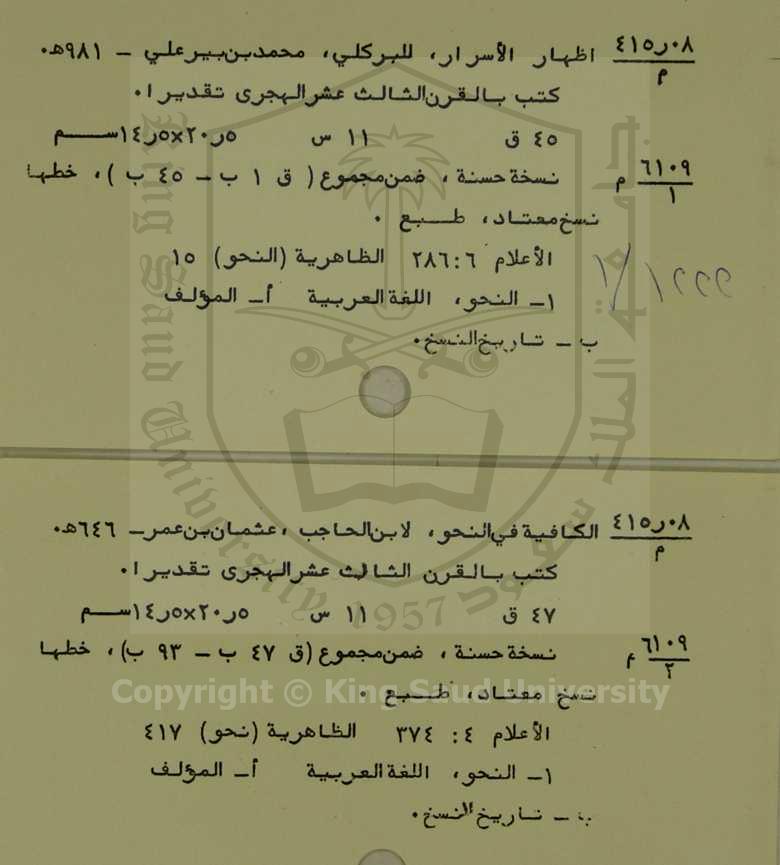 ٤١٥٫٠٨ اظهار الأسرار، للبركلي، محمدبن بيرعلي - ٩٨١هـ.
م
كتب بالقرن الثالث عشر الهجرى تقديرا.
٤٥ ق ١١ س ٢٠٫٥×١٤٫٥ سم
٦١٠٩ م نسخة حسنة ، ضمن مجموع ( ق ١ ب - ٤٥ ب ) ، خطها
١
نسخ معتاد، طبع .
الأعلام ٢٨٦:٦ الظاهرية (النحو) ١٥
١/١٢٢٢
١- النحو، اللغة العربية أ- المؤلف
ب - تاريخ النسخ.
٤١٥٫٠٨ الكافية في النحو، لابن الحاجب ، عثمان بن عمر - ٦٤٦هـ.
م
كتب بالقرن الثالث عشر الهجرى تقديرا.
٤٧ ق ١١ س ٢٠٫٥×١٤٫٥ سم
٦١٠٩ م نسخة حسنة ، ضمن مجموع (ق ٤٧ ب - ٩٣ ب) ، خطها
٢
نسخ معتاد، طبع .
الأعلام ٤: ٣٧٤ الظاهرية (نحو) ٤١٧
١- النحو، اللغة العربية أ- المؤلف
ب - تاريخ النسخ.
جامعة الملك سعود
King Saud University
1957
Copyright © King Saud University